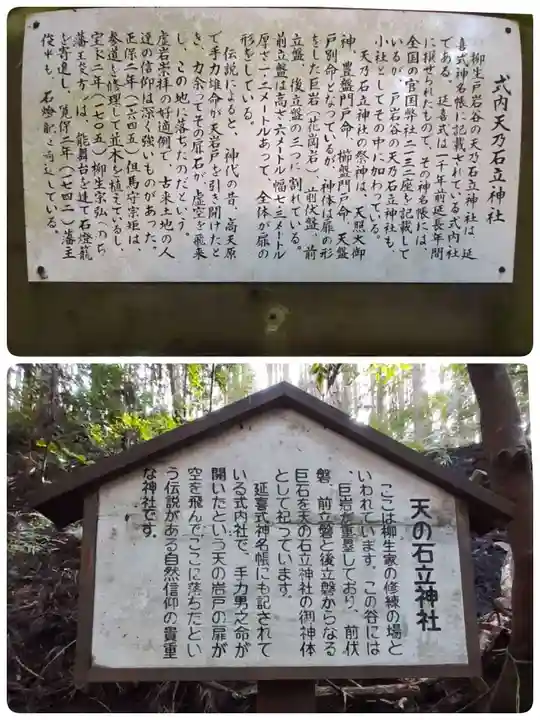 式内天乃石立神社
柳生戸岩谷の天乃石立神社は、延
喜式神名帳に記載されている式内社
である。延喜式は一千年前延長年間
に撰せられたもので、その神名帳には、
全国の官国弊社二一三二座を記載して
いるが、戸岩谷の天乃石立神社も、
小社としてその中に加わっている。
天乃石立神社の祭神は、天照大御
神、豊盤門戸命、櫛盤門戸命、天盤
戸別命となっているが、神体は扉の形
をした巨岩(花崗岩)、前伏盤、前
立盤、後立盤の三つに割れている。
前立盤は高さ六メートル幅七・三メートル
厚さ一・二メートルあって、全体が扉の
形をしている。
伝説によると、神代の昔、高天原
で手力雄命が天岩戸を引き開けたと
き、力余ってその扉石が虚空を飛来
し、この地に落ちたのだという。
虚岩崇拝の好適例で、古来土地の人
達の信仰は深く強いものがあった。
正保二年(一六四五)但馬守宗矩は、
参道を修理して並木を植えているし、
宝永二年(一七〇五)柳生宗弘(のち
藩主俊方)は、能舞台を建て石燈籠
を寄進し、寛保二年(一七四二)藩主
俊平も、石燈籠を寄進している。
天の石立神社
ここは柳生家の修練の場と
いわれています。この谷には
、巨岩が重畳しており、前伏
磐、前立磐と後立磐からなる
巨石を天の石立神社の御神体
として祀っています。
延喜式神名帳にも記されて
いる式内社で、手力男之命が
開いたという天の岩戸の扉が
空を飛んでここに落ちたとい
う伝説がある自然信仰の貴重
な神社です。